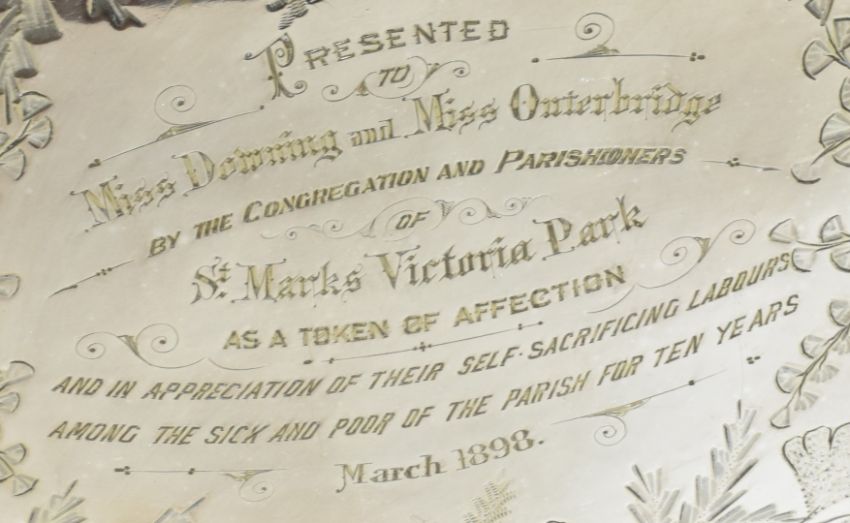 PRESENTED
TO
Miss Downing and Miss Outerbridge
BY THE CONGREGATION AND PARISHIONERS
OF
St. Marks Victoria Park
AS A TOKEN OF AFFECTION
AND IN APPRECIATION OF THEIR SELF-SACRIFICING LABOURS
AMONG THE SICK AND POOR OF THE PARISH FOR TEN YEARS
March 1898.